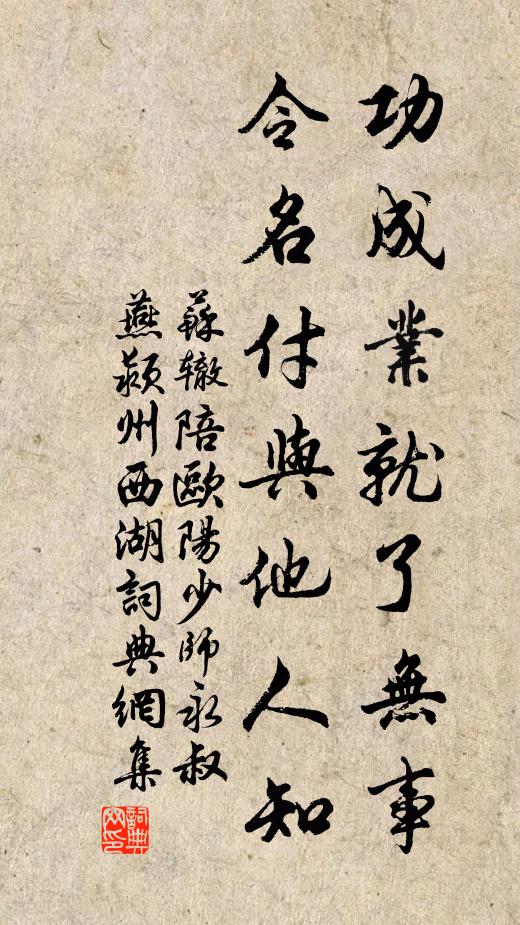 功成業就了無事
令名付與他人知
蘇轍陪歐陽少師永叔
燕潁州西湖詞典網集
詞典網印